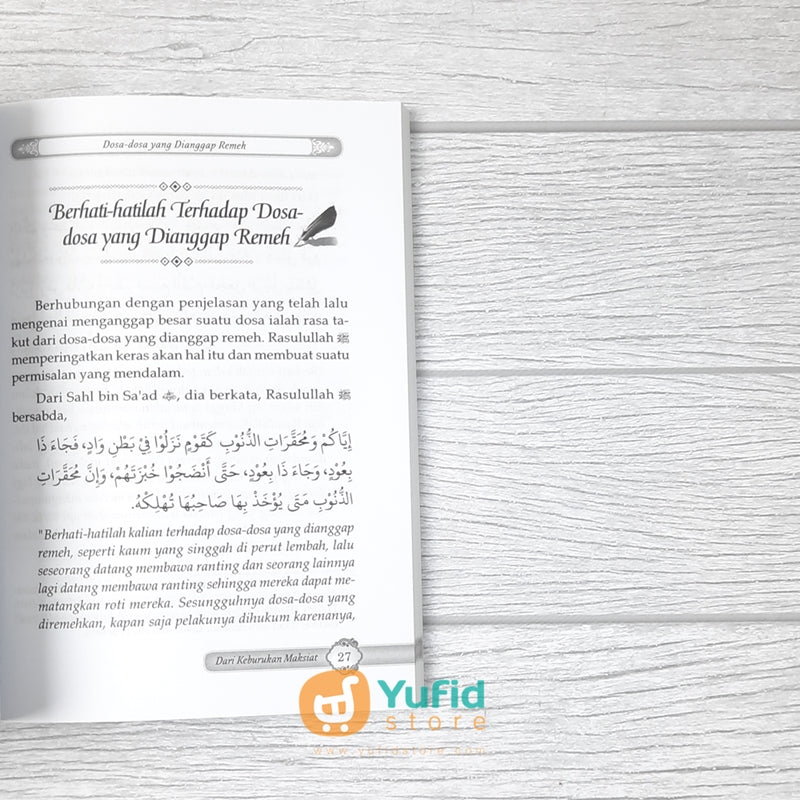 Dosa-dosa yang Dianggap Remeh
Berhati-hatilah Terhadap Dosa-
dosa yang Dianggap Remeh
Berhubungan dengan penjelasan yang telah lalu
mengenai menganggap besar suatu dosa ialah rasa ta-
kut dari dosa-dosa yang dianggap remeh. Rasulullah ﷺ
memperingatkan keras akan hal itu dan membuat suatu
permisalan yang mendalam.
Dari Sahl bin Sa'ad, dia berkata, Rasulullah ﷺ
bersabda,
إِيَّاكُمْ وَمُحَقَّرَاتِ الذُّنُوْبِ كَقَوْمٍ نَزَلُوْا فِيْ بَطْنِ وَادٍ، فَجَاءَ ذَا
بِعُوْدٍ، وَجَاءَ ذَا بِعُوْدٍ، حَتَّى أَنْضَجُوْا خُبْزَتَهُمْ، وَإِنَّ مُحَقَّرَاتِ
الذُّنُوْبِ مَتَى يُؤْخَذْ بِهَا صَاحِبُهَا تُهْلِكْهُ.
"Berhati-hatilah kalian terhadap dosa-dosa yang dianggap
remeh, seperti kaum yang singgah di perut lembah, lalu
seseorang datang membawa ranting dan seorang lainnya
lagi datang membawa ranting sehingga mereka dapat me-
matangkan roti mereka. Sesungguhnya dosa-dosa yang
diremehkan, kapan saja pelakunya dihukum karenanya,
Dari Keburukan Maksiat 27
Yufid
store
www.yufidstore.com